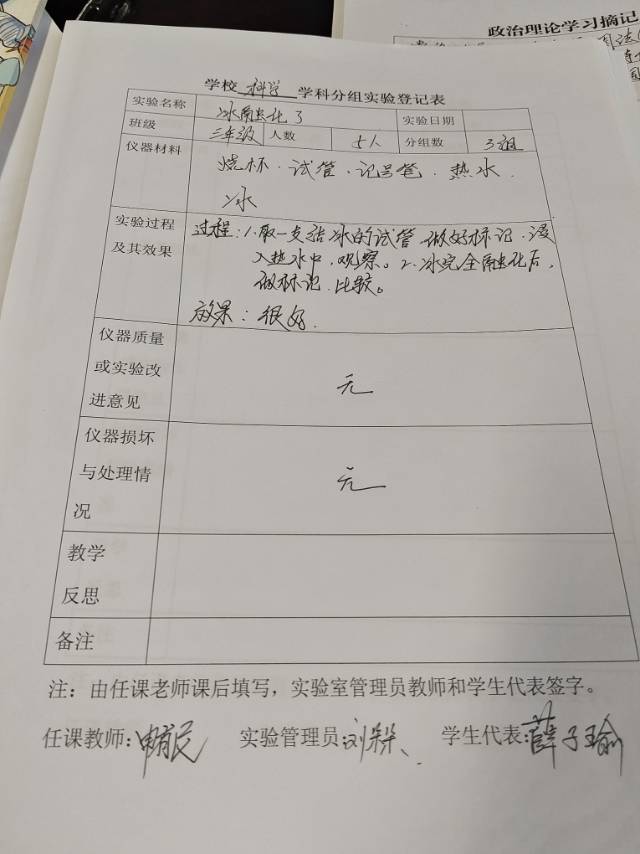 政治理论学习摘记
学校 科学 学科分组实验登记表
实验名称 冰融化了 实验日期
班级 三年级 人数 七人 分组数 3组
仪器材料 烧杯·试管·记号笔·热水·
冰
实验过程 过程:1.取一支结冰的试管 做好标记·浸
及其效果 入热水中,观察。2.冰完全融化后,
做标记.比较。
效果:很好.
仪器质量
或实验改 无
进意见
仪器损坏
与处理情 无
况
教学
反思
备注
注:由任课老师课后填写,实验室管理员教师和学生代表签字。
任课教师: 实验管理员: 学生代表:薛子瑜